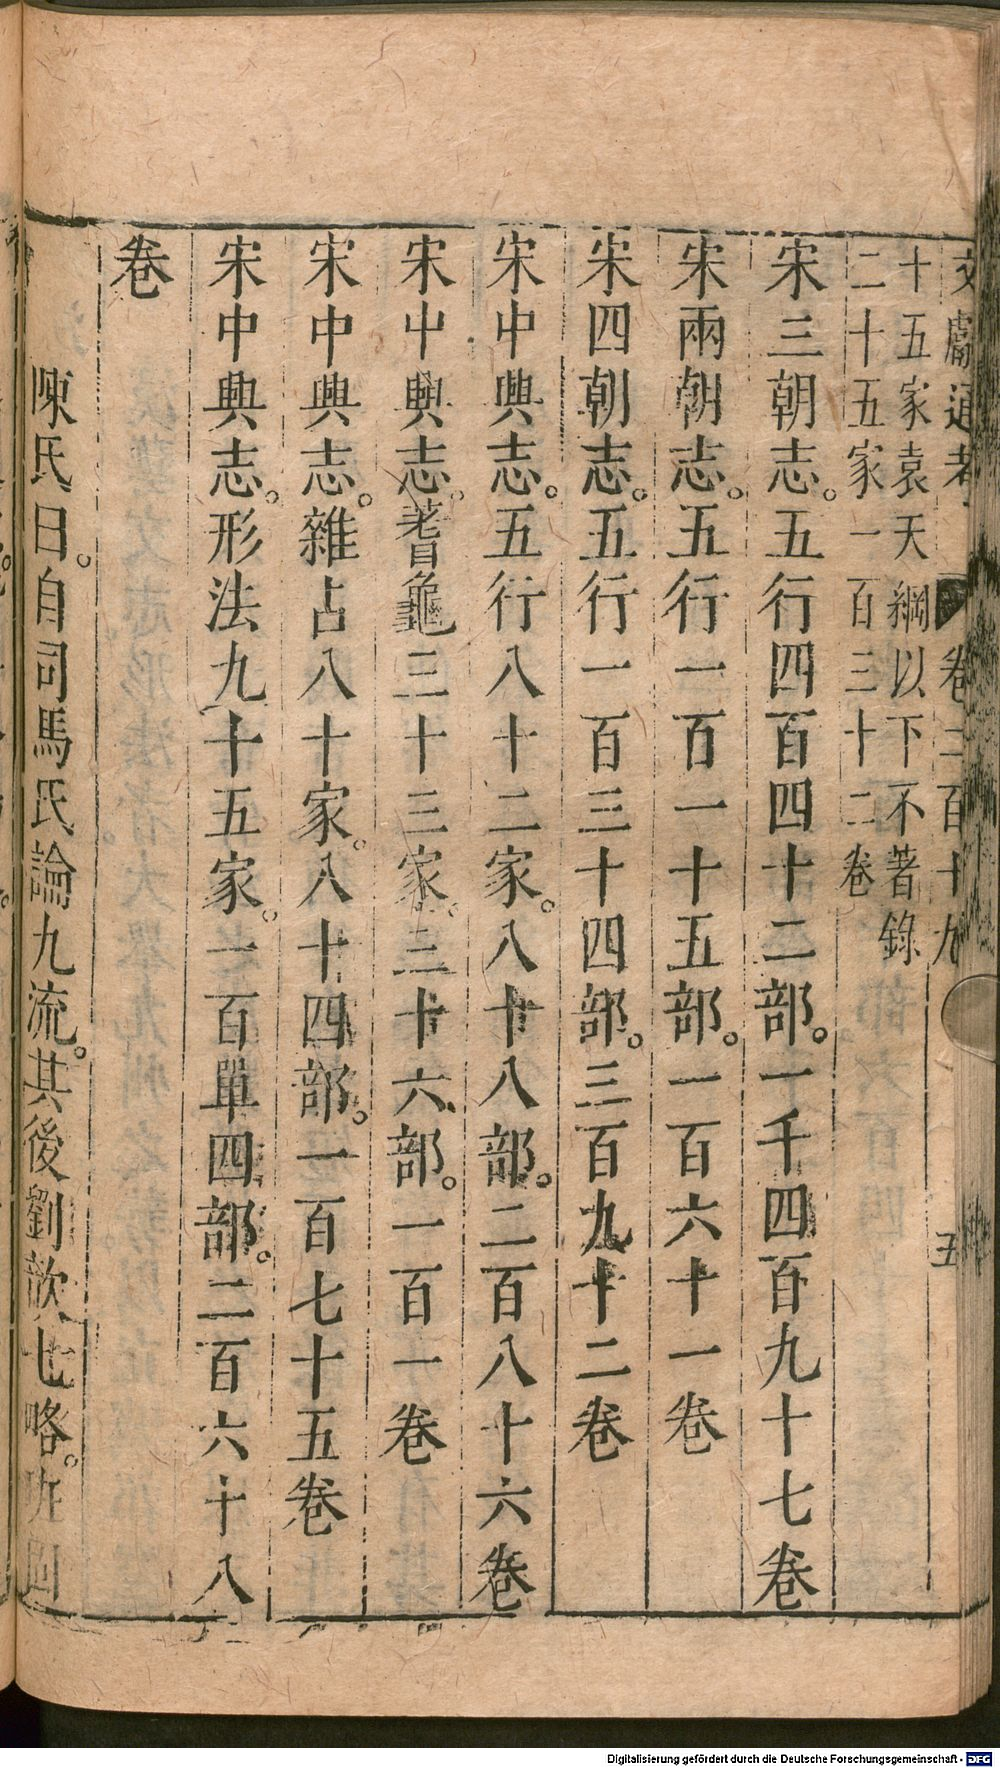 文獻通考 卷二百十九 五
十五家袁天綱以下不著錄
二十五家一百三十二卷
宋三朝志。五行四百四十二部。一千四百九十七卷
宋兩朝志。五行一百一十五部。一百六十一卷
宋四朝志。五行一百三十四部。三百九十二卷
宋中興志。五行八十二家。八十八部。二百八十六卷
宋中興志。蓍龜三十三家。三十六部。一百一卷
宋中興志。雜占八十家。八十四部。一百七十五卷
宋中興志。形法九十五家。一百單四部。二百六十八
卷
陳氏曰。自司馬氏論九流。其後劉歆七略。班固
Digitalisierung gefördert durch die Deutsche Forschungsgemeinschaft - DFG